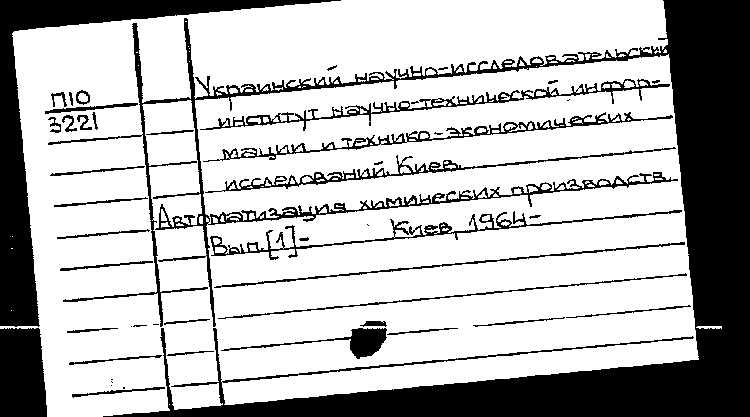 П10
3221
Украинский научно-исследовательский
институт научно-технической инфор-
мации и технико-экономических
исследований. Киев.
Автоматизация химических производств.
Вып.[1]- Киев, 1964-